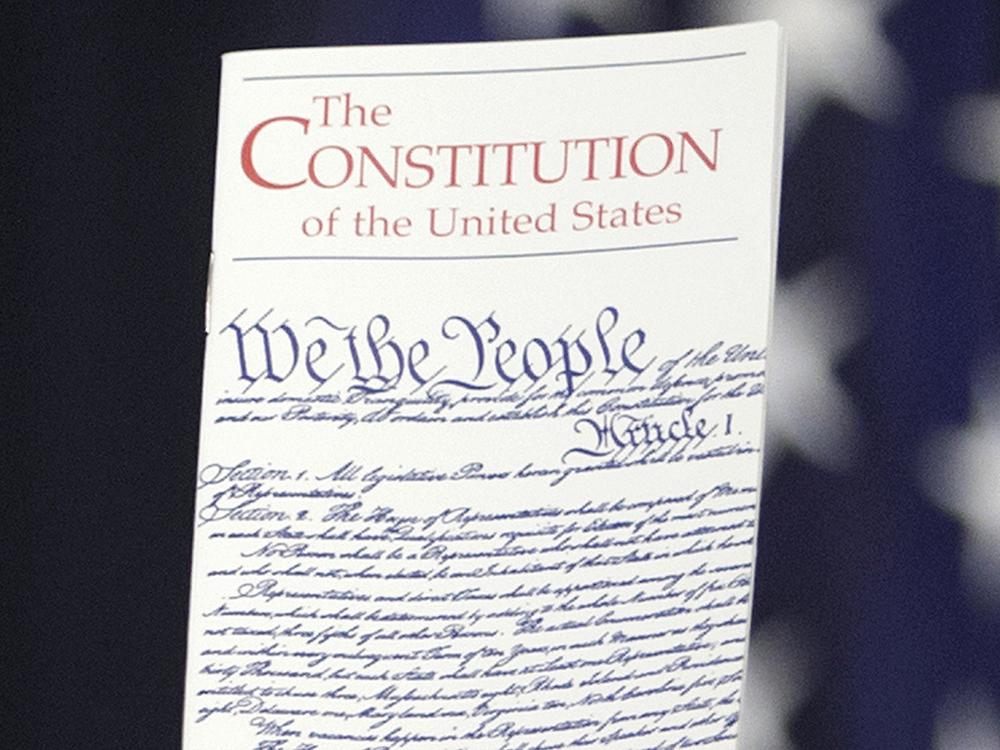 The
CONSTITUTION
of the United States
We the People of the Unit
insure domestic Tranquility, provide for the common defence, promo
and our Posterity, do ordain and establish this Constitution for the U
Article. I.
Section. 1. All legislative Powers herein granted shall be vested in
of Representatives.
Section. 2. The House of Representatives shall be composed of Mem
in each State shall have Qualifications requisite for Electors of the most numerou
No Person shall be a Representative who shall not have attained t
and who shall not, when elected, be an Inhabitant of that State in which he
Representatives and direct Taxes shall be apportioned among the
Numbers, which shall be determined by adding to the whole Number of free
not taxed, three fifths of all other Persons. The actual Enumeration shall be
and within every subsequent Term of ten Years, in such Manner as they
thirty Thousand, but each State shall have at Least one Representative;
entitled to chuse three, Massachusetts eight, Rhode Island and Providence
eight, Delaware one, Maryland six, Virginia ten, North Carolina five,
When vacancies happen in the Representation from any State, the